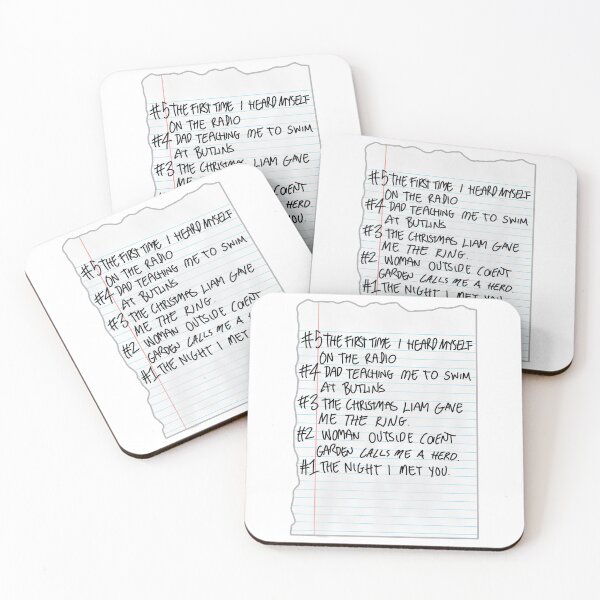 #5 THE FIRST TIME I HEARD MYSELF
ON THE RADIO
#4 DAD TEACHING ME TO SWIM
AT BUTLINS
#3 THE CHRISTMAS LIAM GAVE
ME
COENT
A HERO.
YOU.
#5 THE FIRST TIME I HEARD MYSELF
ON THE RADIO
#4 DAD TEACHING ME TO SWIM
AT BUTLINS
#3 THE CHRISTMAS LIAM GAVE
ME THE RING.
#2 WOMAN OUTSIDE COENT
GARDEN CALLS ME A HERO.
#1 THE NIGHT I MET YOU.
#5 THE FIRST TIME I HEARD MYSELF
ON THE RADIO
#4 DAD TEACHING ME TO SWIM
AT BUTLINS
#3 THE CHRISTMAS LIAM GAVE
ME THE RING.
#2 WOMAN OUTSIDE COENT
GARDEN CALLS ME A HERO.
#1 THE NIGHT I MET YOU.
#5 THE FIRST TIME I HEARD MYSELF
ON THE RADIO
#4 DAD TEACHING ME TO SWIM
AT BUTLINS
#3 THE CHRISTMAS LIAM GAVE
ME THE RING.
#2 WOMAN OUTSIDE COENT
GARDEN CALLS ME A HERO.
#1 THE NIGHT I MET YOU.